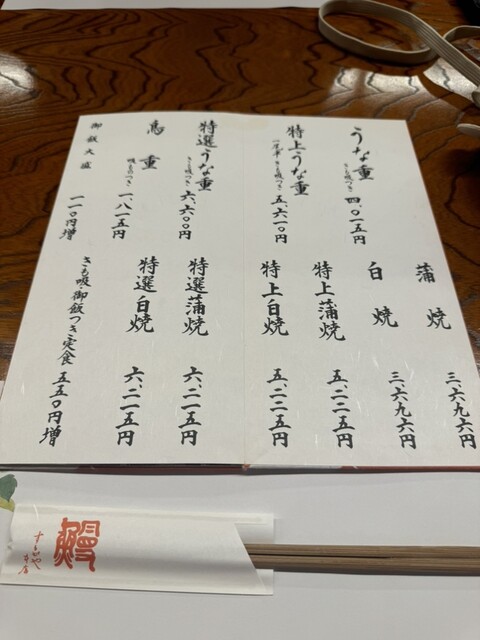 うな重
きも吸つき
四、〇一五円
特上うな重
一尾半 きも吸つき
五、六一〇円
特選うな重
きも吸つき
六、六〇〇円
鳥重
吸ものつき
一、八一五円
御飯大盛
一一〇円増
蒲焼
三、六九六円
白焼
三、六九六円
特上蒲焼
五、二二五円
特上白焼
五、二二五円
特選蒲焼
六、二一五円
特選白焼
六、二一五円
きも吸・御飯つき定食
五五〇円増
鰻